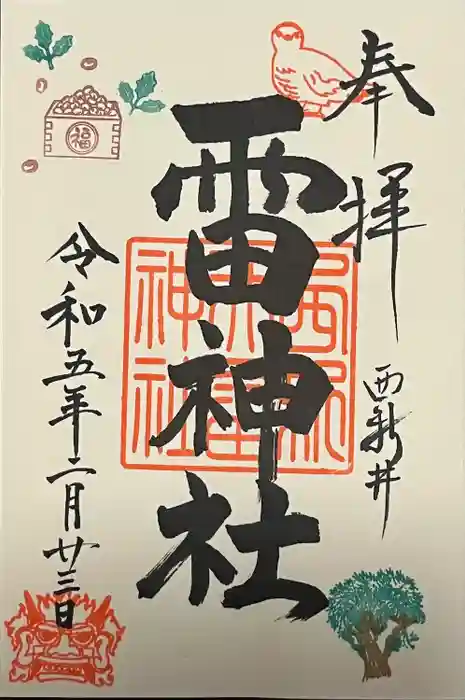 奉拝
西新井
雷神社
令和五年二月廿三日
福